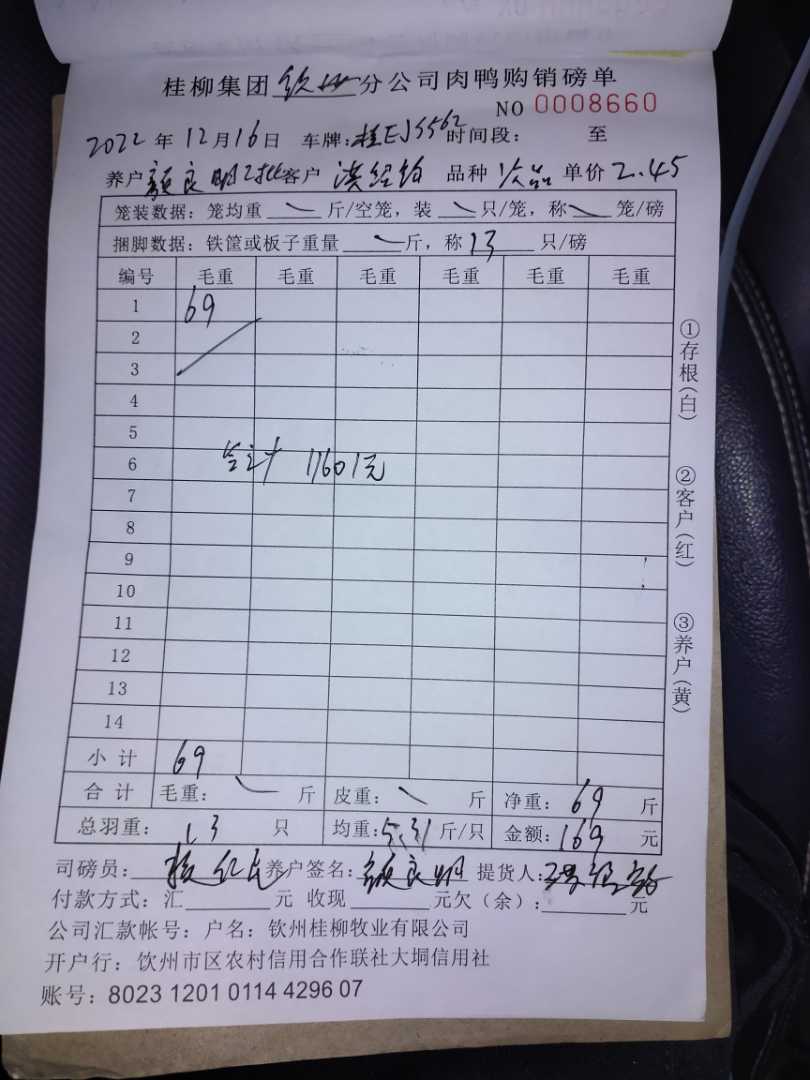 桂柳集团 钦州 分公司肉鸭购销磅单
NO 0008660
2022 年 12月16日 车牌:桂EJ5562 时间段: 至
养户 良明2批 客户 洪经 品种 次品 单价 2.45
笼装数据: 笼均重 斤/空笼, 装 只/笼, 称 笼/磅
捆脚数据: 铁筐或板子重量 斤, 称 13 只/磅
编号 毛重 毛重 毛重 毛重 毛重 毛重
1 69
2
3
4
5
6 合计 11601元
7
8
9
10
11
12
13
14
小计 69
合计 毛重: 斤 皮重: 斤 净重: 69 斤
总羽重: 13 只 均重:5.31 斤/只 金额:169 元
司磅员: 养户签名: 良明 提货人:
付款方式: 汇 元 收现 元欠(余): 元
公司汇款帐号: 户名: 钦州桂柳牧业有限公司
开户行: 饮州市区农村信用合作联社大垌信用社
账号: 8023 1201 0114 4296 07
①存根(白)
②客户(红)
③养户(黄)